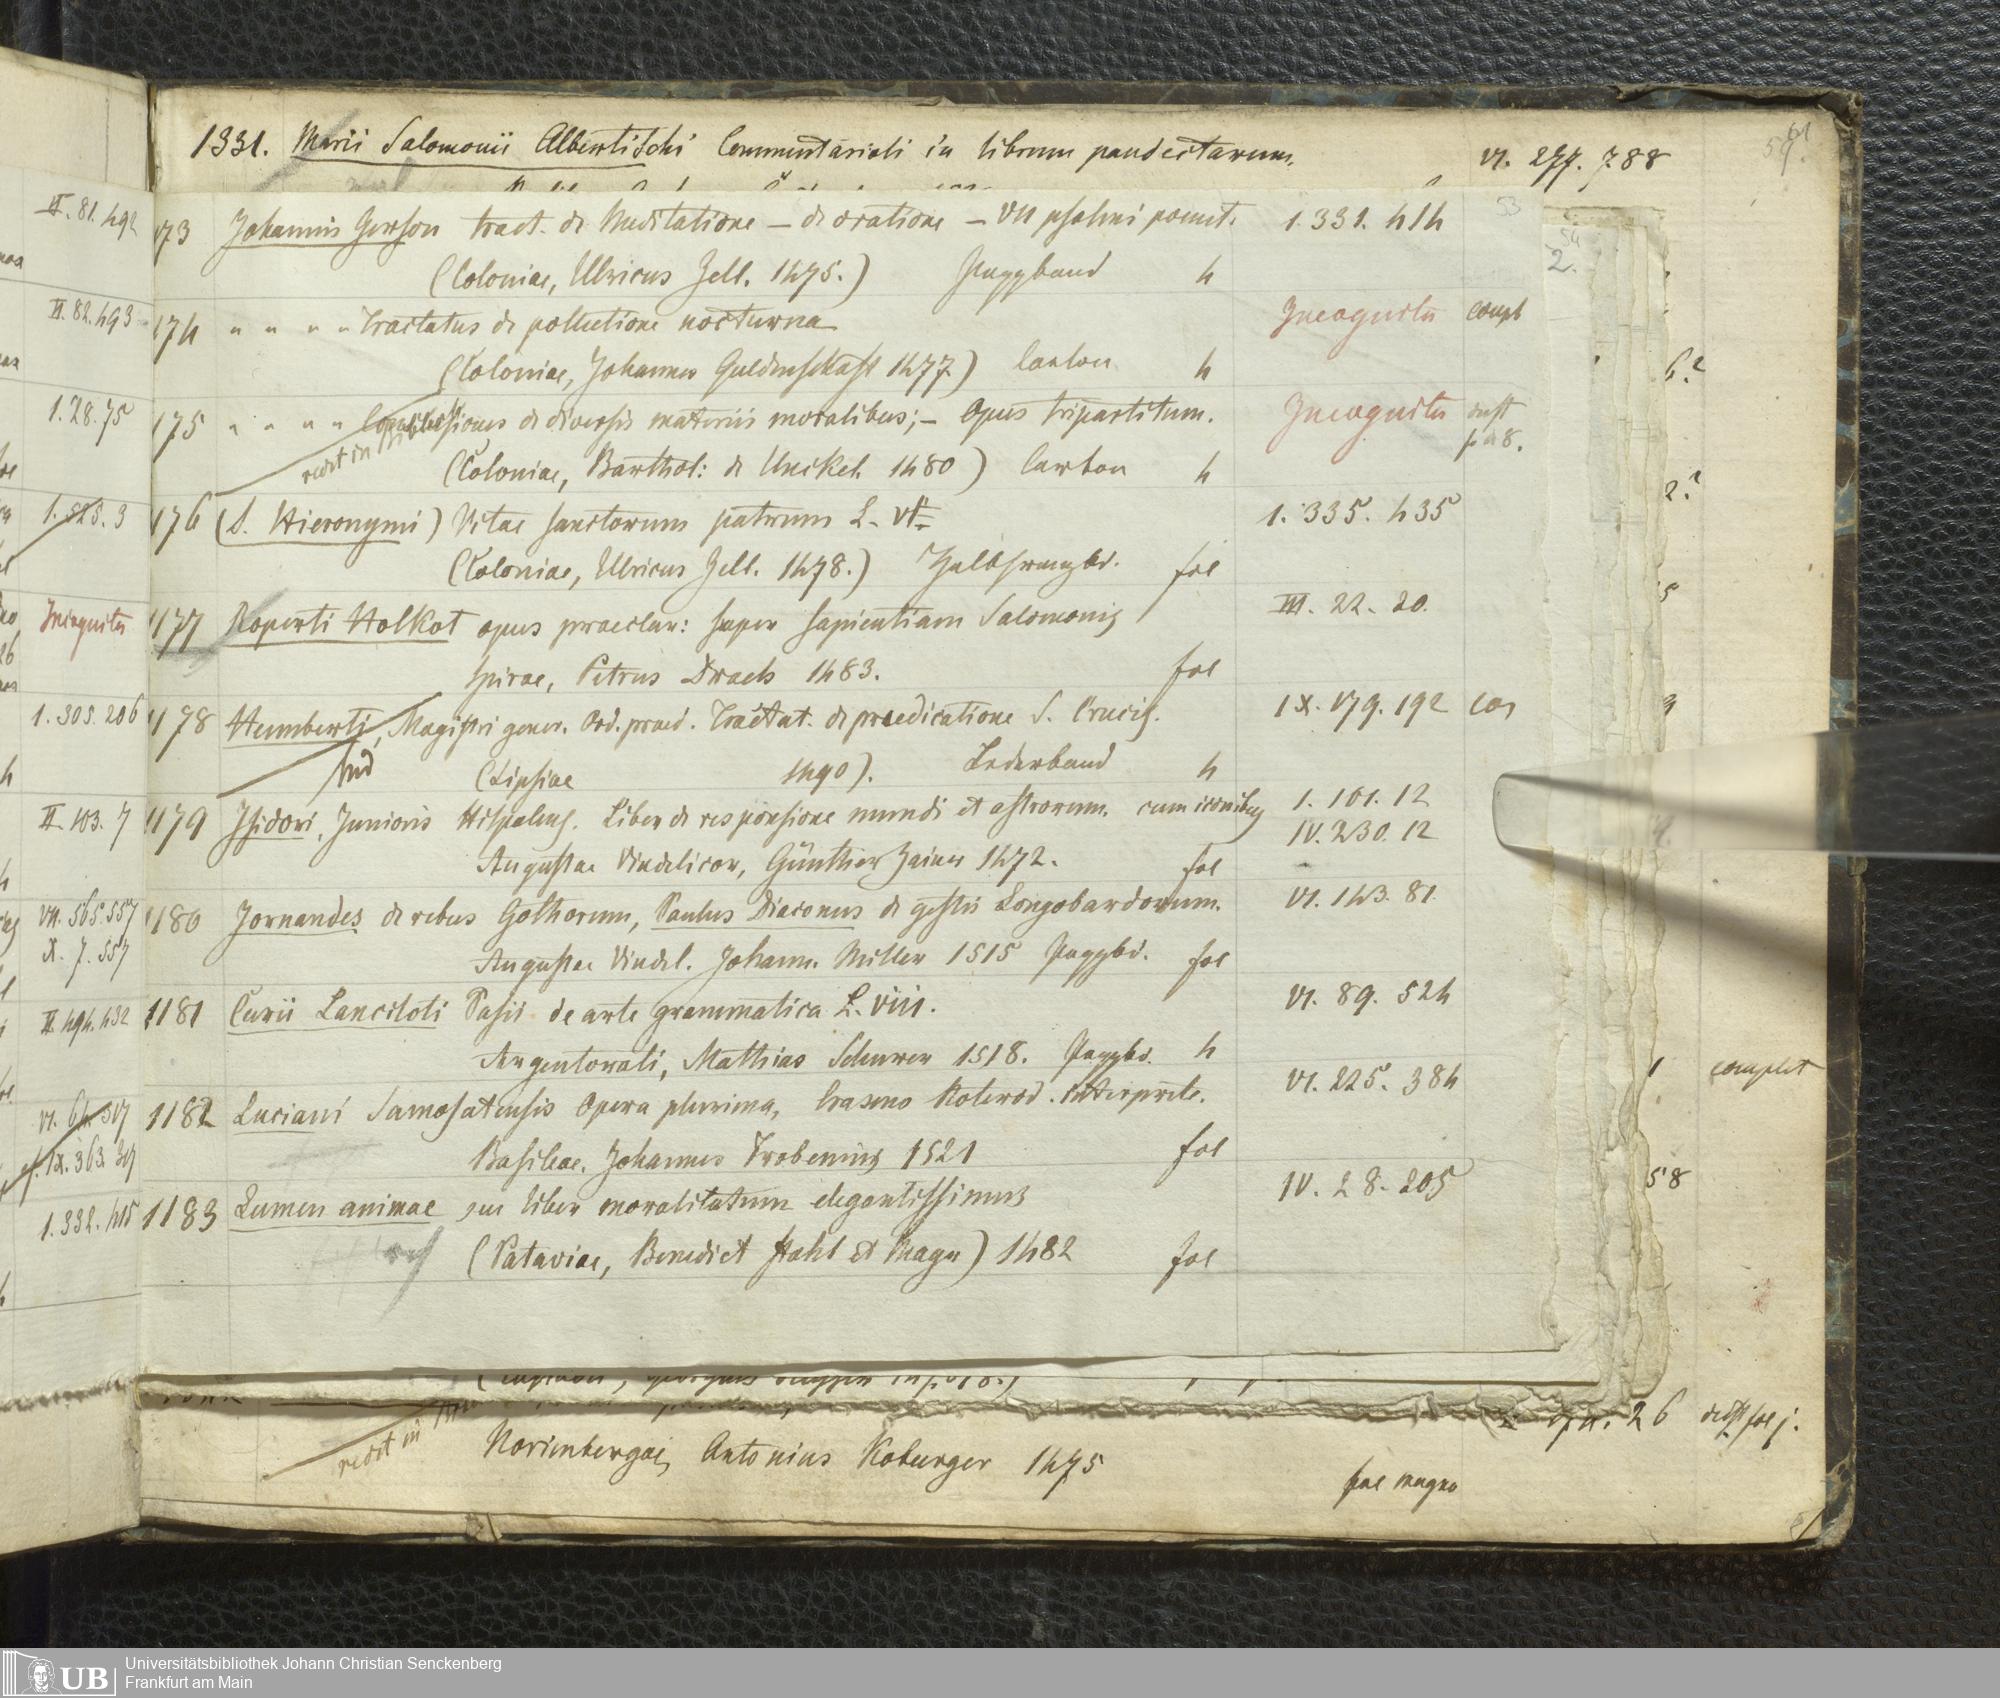 61
1331. Marii Salomonii Albertischi Commentarioli in librum pandectarum. VI. 277. 788
53
73 Johannis Gerson tract. de Meditatione – de oratione – VII psalmi poenit. 1. 331. 414
(Coloniae, Ulricus Zell. 1475.) Pappband 4
174 " " " " Tractatus de pollutione nocturna Incognita compl
(Coloniae, Johannes Guldenschaff 1477) Carton 4
175 " " " " Conclusiones de diversis materiis moralibus; – Opus tripartitum. Incognita
redit in
(Coloniae, Barthol: de Unckel 1480) Carton 4
176 (S. Hieronymi) Vitae sanctorum patrum L. VI. 1. 335. 435
(Coloniae, Ulricus Zell. 1478.) Halbfranzbd. fol
1177 Roperti Holkot opus praeclar: super sapientiam Salomonis III. 22. 20.
Spirae, Petrus Drach 1483. fol
1178 Humberti, Magistri gener. Ord. praed. Tractat. de praedicatione S. Crucis. IX. 179. 192
(Lipsiae 1490). Lederband 4
1179 Isidori, Junioris Hispalens. Liber de responsione mundi et astrorum. cum iconibus 1. 101. 12
IV. 230. 12
Augustae Vindelicor, Günther Zainer 1472. fol
1180 Jornandes de rebus Gothorum, Paulus Diaconus de gestis Longobardorum. VI. 143. 81.
Augustae Vindel. Johann. Miller 1515 Pappbd. fol
1181 Curii Lanciloti Pasii de arte grammatica L. VIII. VI. 89. 524
Argentorati, Mathias Schurer 1518. Pappbd. 4
1182 Luciani Samosatensis Opera plurima, Erasmo Roterod. interprete. VI. 225. 384
Basileae, Johannes Frobenius 1521 fol
1183 Lumen animae seu liber moralitatum elegantissimus IV. 28. 205
(Pataviae, Benedict Stahl et Mayr) 1482 fol
redit in
Norimbergae, Antonius Koburger 1475
fol magno
complet
58
26
II. 81. 492
II. 82. 493
1. 28. 75
1. 525. 3
Incognita
1. 305. 206
II. 103. 7
VII. 565. 557
X. 7. 557
II. 494. 432
IX. 363. 317
1. 332. 415
UB
Universitätsbibliothek Johann Christian Senckenberg
Frankfurt am Main